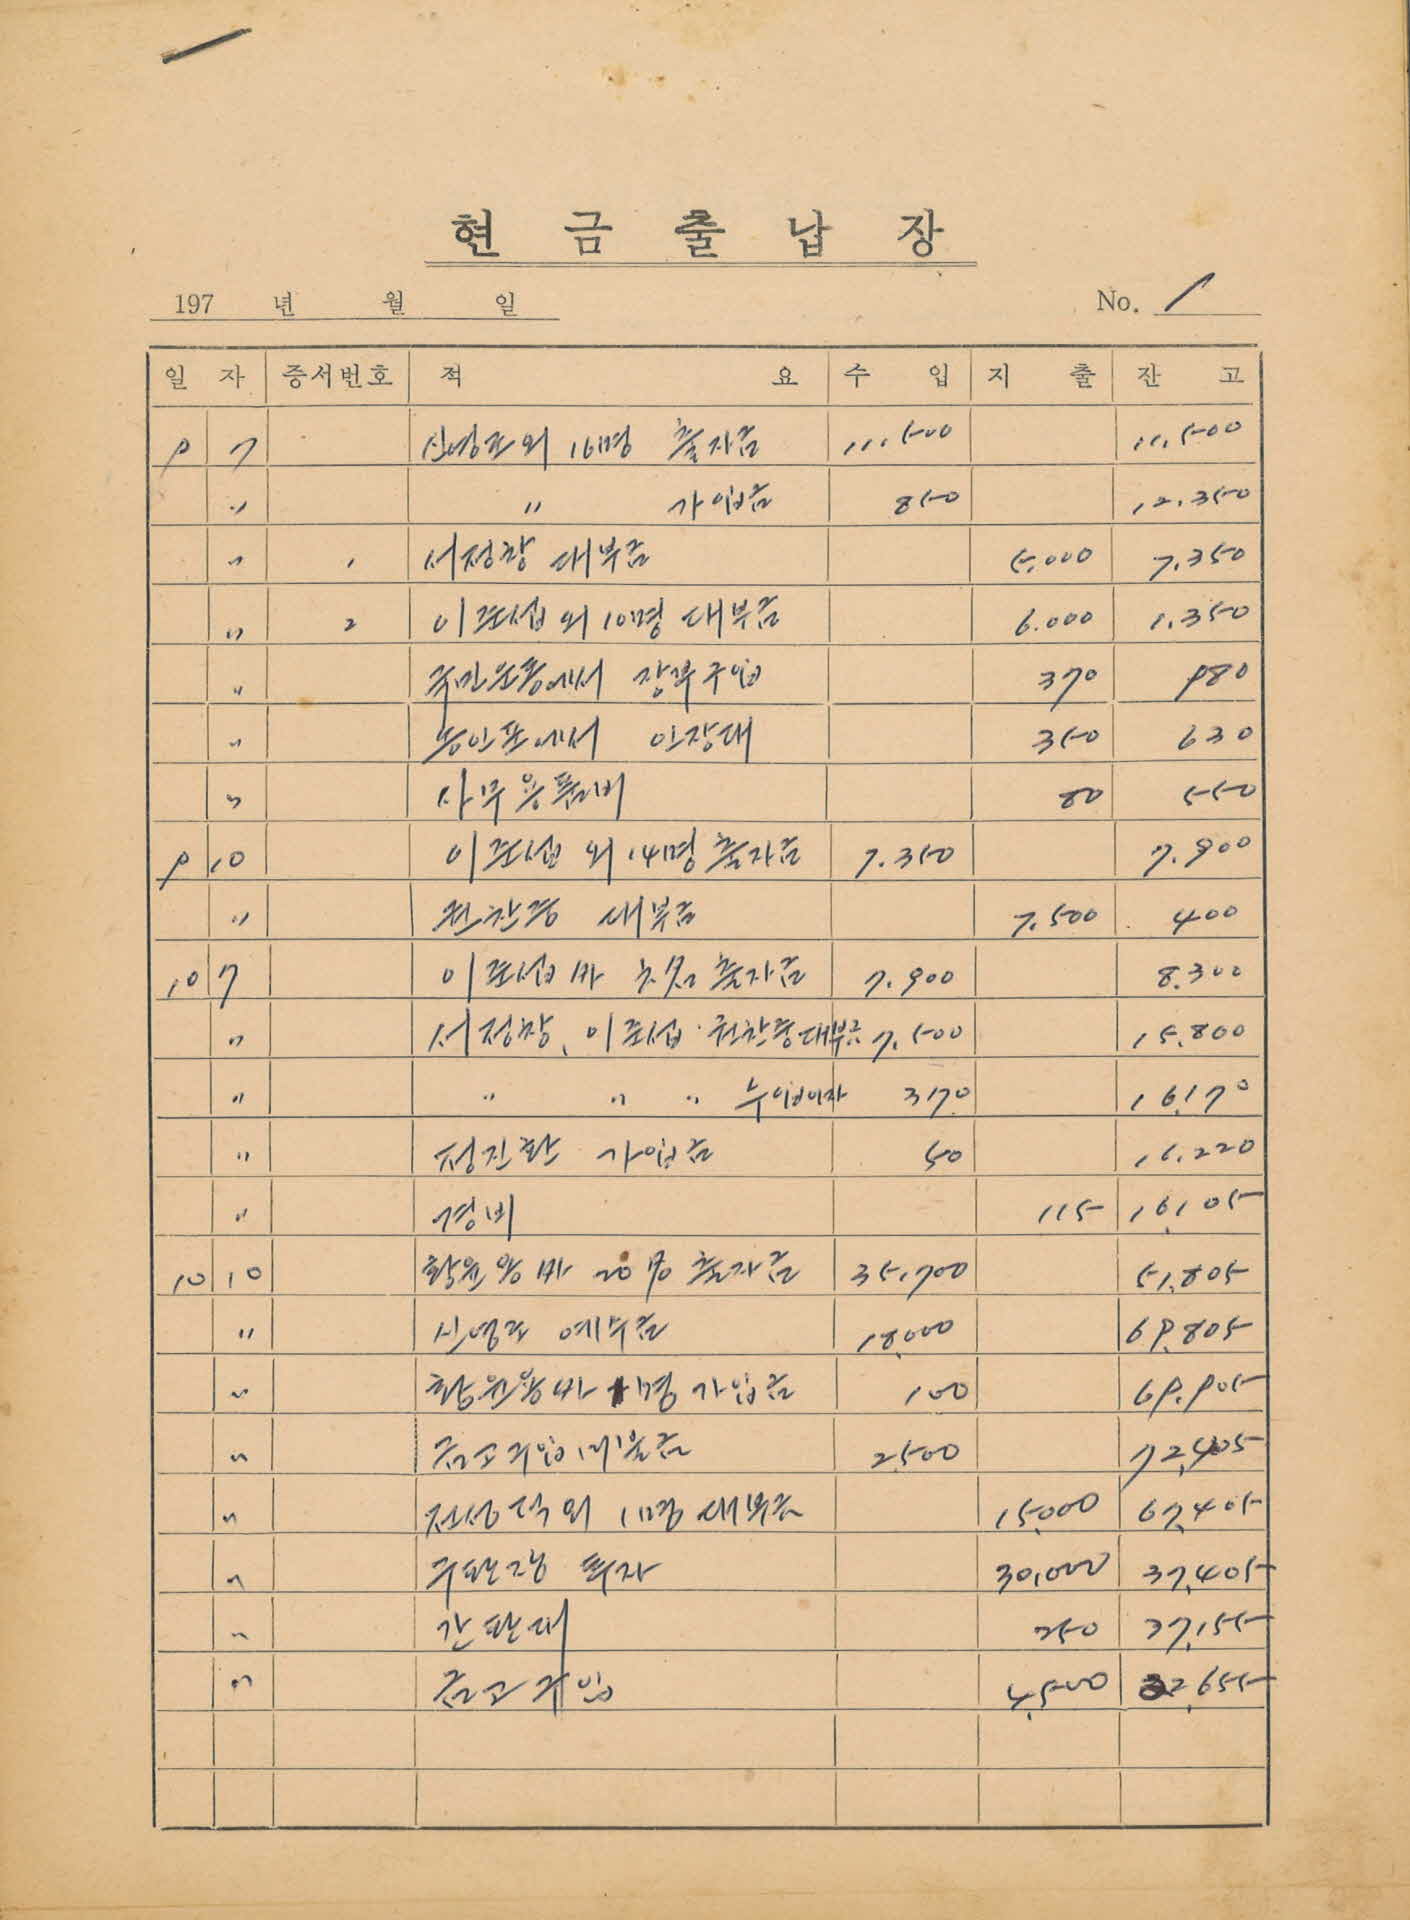 현금출납장
197 년 월 일 No. 1
일 자 증서번호 적 요 수 입 지 출 잔 고
9 7 신영균외 16명 출자금 11,500 11,500
〃 〃 가입금 850 12,350
〃 1 서정창 대부금 5,000 7,350
〃 2 이준섭외 10명 대부금 6,000 1,350
〃 국민운동에서 장부구입 370 980
〃 에서 인장대 350 630
〃 사무용품비 80 550
9 10 이준섭 외 14명 출자금 7,350 7,900
〃 권찬중 대부금 7,500 400
10 7 이준섭 출자금 7,900 8,300
〃 서정창, 이준섭, 권찬중 대부금 7,500 15,800
〃 〃 〃 〃 수입이자 370 16,170
〃 정진환 가입금 50 16,220
〃 경비 115 16,105
10 10 20명 출자금 35,700 51,805
〃 예수금 18,000 69,805
〃 1명 가입금 100 69,905
〃 금고구입 미불금 2,500 72,405
〃 외 1명 대부금 15,000 57,405
〃 구판장 투자 30,000 37,405
〃 간판대 250 37,155
〃 금고구입 4,500 32,655